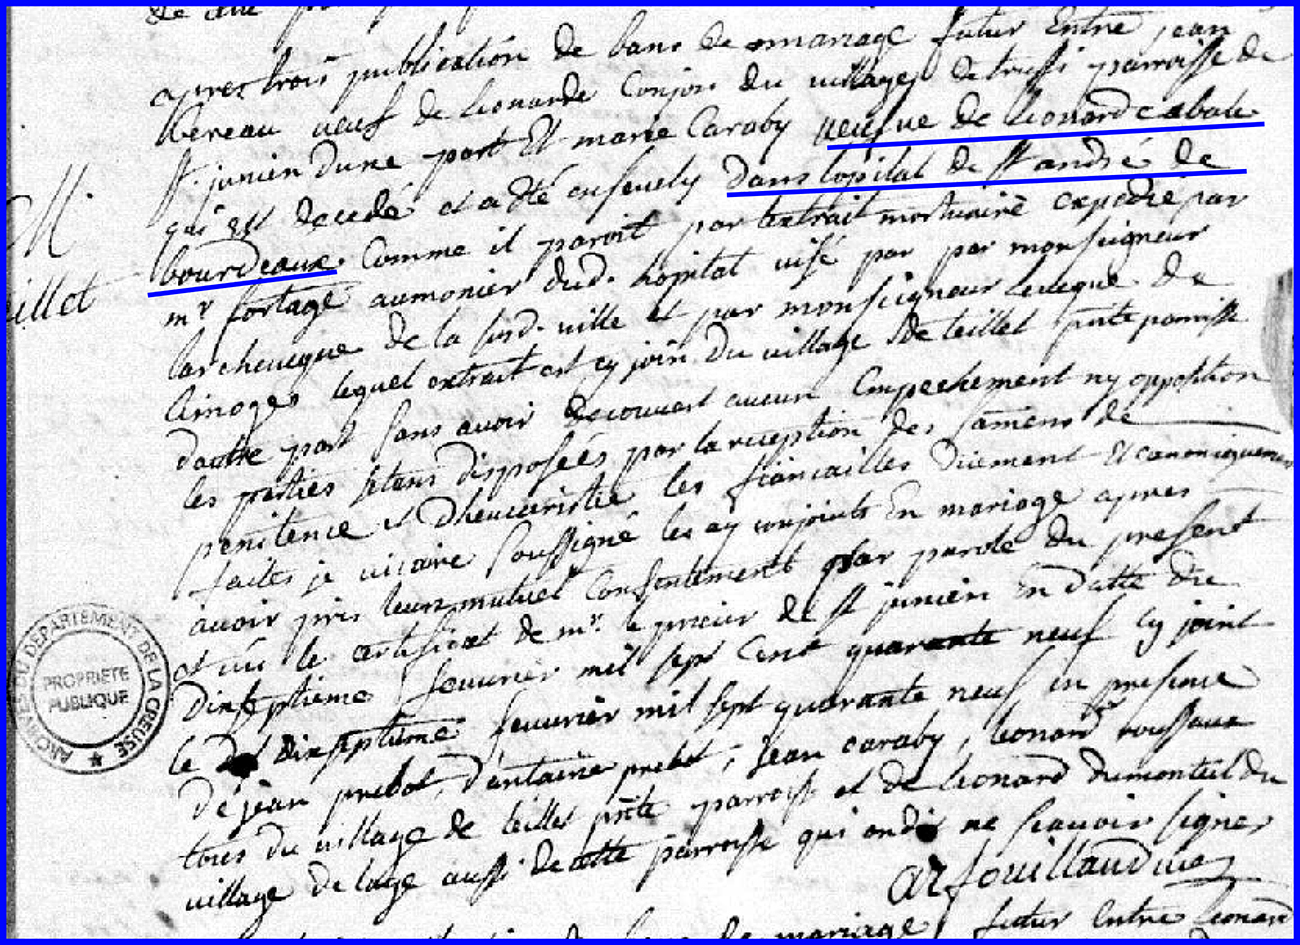 apres trois publication de bans de mariage futur Entre jean
bereau veuf de Leonarde Conjon du village de trussi parroisse de
St junien Dune part Et marie Caraby veufve de Leonard cabale
qui est decedé et a été ensevely dans lopital de St andré de
bourdeaux. Comme il paroit par lextrait mortuaire expedié par
mr fortage aumonier dud. hopital visé par par monseigneur
larcheveque de la susd. ville et par monseigneur leveque de
Limoges lequel extrait est cy join. Du village de teillet pnte parroisse
dautre part sans avoir decouvert aucun Empechement ny opposition
les parties setens disposées par la reception des sacmens de
penitence et Dheucaristie les fiancailles Duement Et canoniquement
faites je vicaire soussigné les ay conjoints En mariage apres
avoir pris leur mutuel Consentement par parole du present
et vu le certificat de mr. le prieur de St junien En datte du
Dixseptieme feuvrier mil sept Cent quarante neuf Cy joint
le dixseptieme feuvrier mil sept quarante neuf en presence
de jean prebot, d'antoine prebot, Jean caraby, leonard roussaux
tous du village de teillet pnte parroisse et de Leonard dumonteil du
village de lage aussi de cette parroisse qui ondit ne scavoir signer
M.
eillet
arfouillaud vic
de mariage futur Entre Leonard
ARCHIVES DU DEPARTEMENT DE LA CREUSE
PROPRIETE
PUBLIQUE